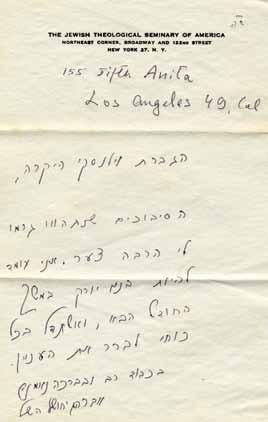 ב"ה
THE JEWISH THEOLOGICAL SEMINARY OF AMERICA
NORTHEAST CORNER, BROADWAY AND 122ND STREET
NEW YORK 27, N. Y.
155 Fifth Anita
Los Angeles 49, Cal
הגברת וילנסקי היקרה,
הסיבוכים שנתהוו גרמו
לי הרבה צער. אני עומד
להיות בניו יורק במשך
החודש הבא, ואשתדל בכל
כוחי לברר את הענין.
בכבוד רב ובברכה נאמנה
אברהם יהושע השל